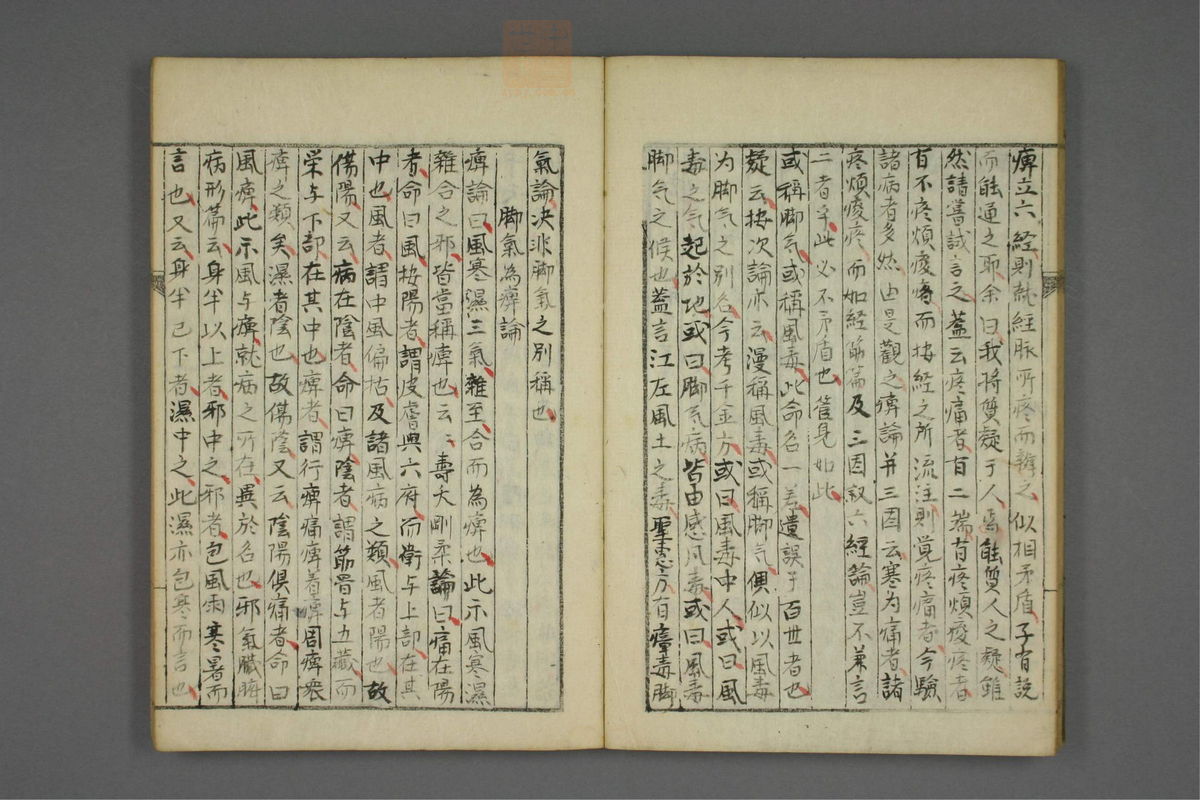 痺立六経則就経脉所疼而辨之似相矛盾子有説
而能通之耶余曰我将質疑于人焉能質人之疑雖
然請嘗試言之蓋云疼痛者有二端有疼煩痠疼者
有不疼煩痠疼而按経之所流注則覚疼痛者今驗
諸病者多然由是觀之痺論并三因云寒为痛者諸
疼煩痠疼而如経筋篇及三因叙六經論豈不兼言
二者乎此必不矛盾也管見如此
或稱脚気或稱風毒此命名一差遺誤于百世者也
疑云按次論亦云漫稱風毒或稱脚気俱似以風毒
为脚气之别名今考千金方或曰風毒中人或曰風
毒之气起於地或曰脚气病皆由感风毒或曰風毒
脚气之候也蓋言江左風土之毒聖惠方有瘴毒脚
氣論决非脚氣之別稱也
脚氣為痺論
痺論曰風寒濕三氣雜至合而為痺也此示風寒濕
雜合之邪皆當稱痺也云々壽夭剛柔論曰痛在陽
者命曰風按陽者謂皮膚與六府而衛与上部在其
中也風者謂中風偏枯及諸風病之類風者陽也故
傷陽又云病在陰者命曰痺陰者謂筋骨与五藏而
栄与下部在其中也痺者謂行痺痛痺着痺周痺衆
痺之類矣濕者陰也故傷陰又云陰陽俱痛者命曰
風痺此示風与痺就病之所在異於名也邪氣臓腑
病形篇云身半以上者邪中之邪者包風雨寒暑而
言也又云身半已下者濕中之此濕亦包寒而言也